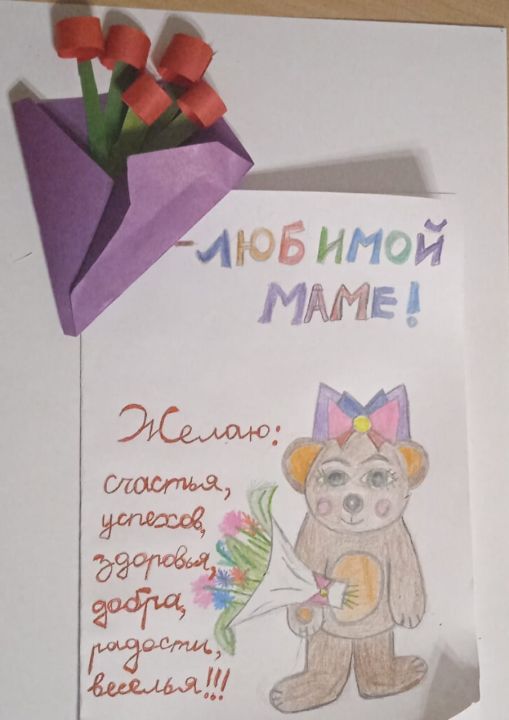 -ЛЮБИМОЙ
МАМЕ!
Желаю:
счастья,
успехов,
здоровья,
добра,
радости,
веселья!!!